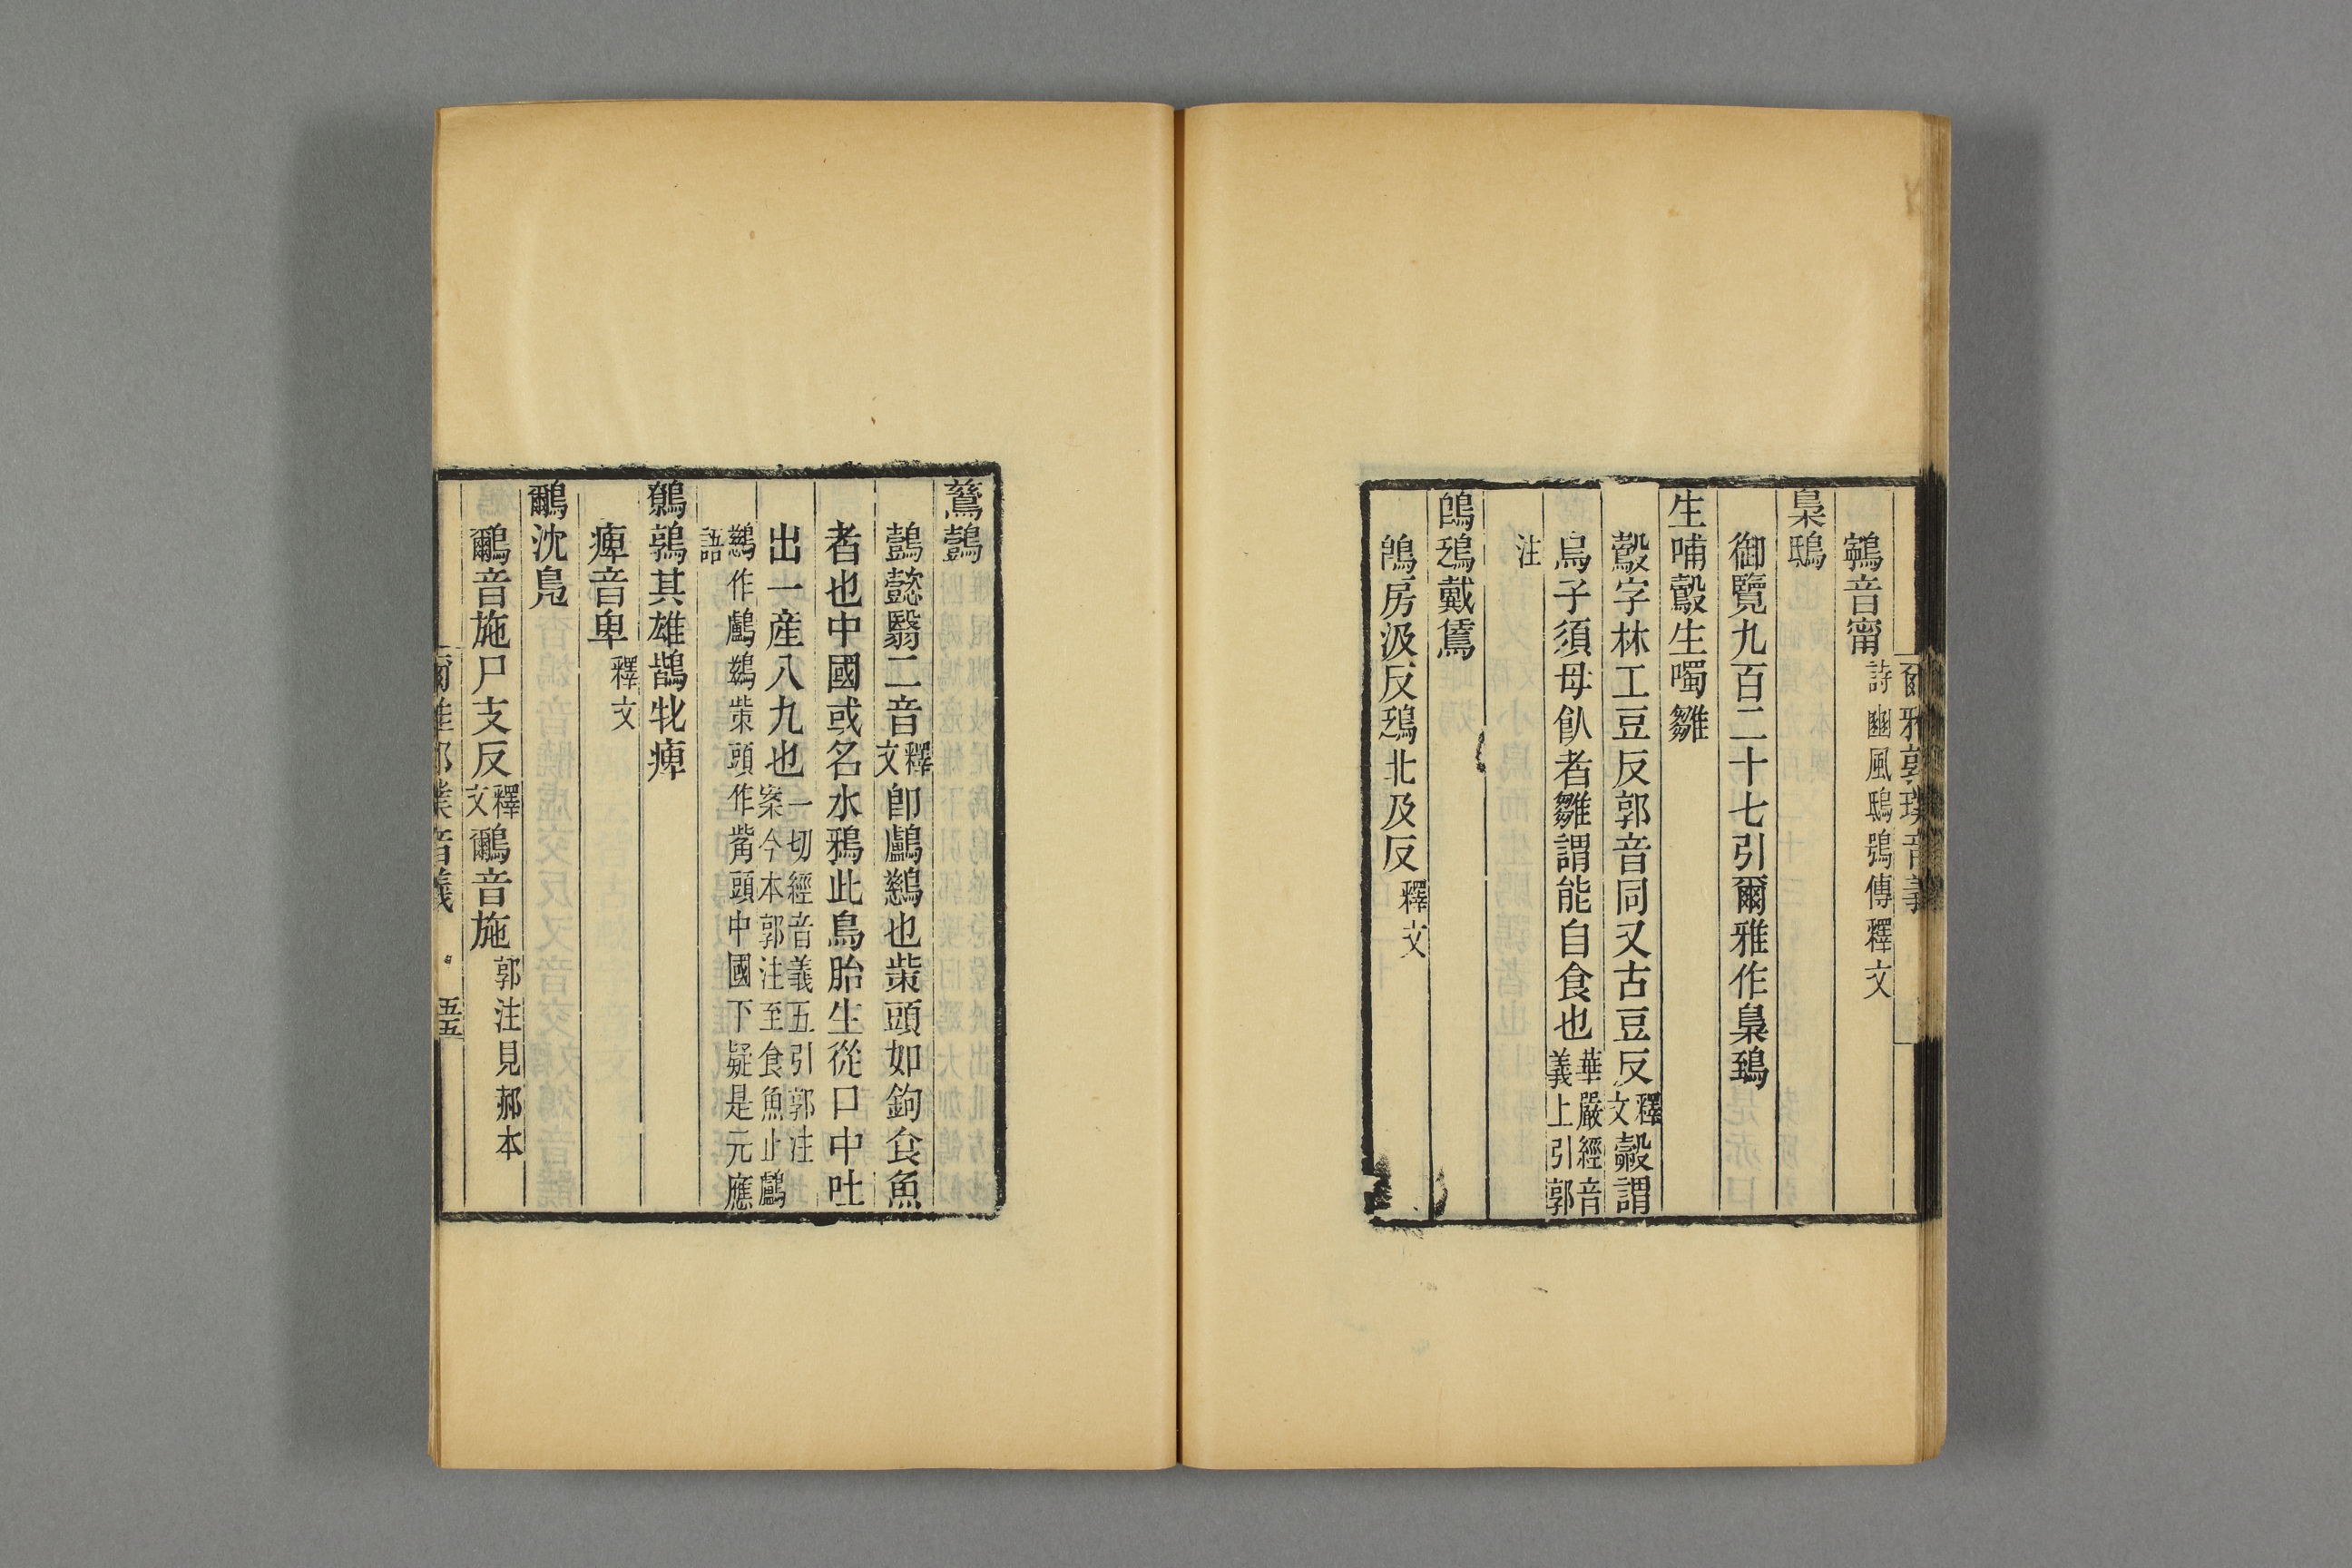 爾雅郭璞音義
鸋音甯詩豳風鴟鴞傳釋文
梟鴟
御覽九百二十七引爾雅作梟鵄
生哺鷇生噣雛
鷇字林工豆反郭音同又古豆反釋文鷇謂
鳥子須母飤者雛謂能自食也華嚴經音義上引郭
注
鵖鴔戴鵀
鵖房汲反鴔北及反釋文
鷾
鷧懿翳二音釋文卽鸕鷀也觜頭如鉤食魚
者也中國或名水鴉此鳥胎生從口中吐
出一産八九也一切經音義五引郭注案今本郭注至食魚止鸕
鷀作鸕鶿觜頭作觜頭中國下疑是元應
語
鷯鶉其雄鶛牝痺
痺音卑釋文
鸍沈鳧
鸍音施尸支反釋文鸍音施郭注見郝本
爾雅郭璞音義 五五